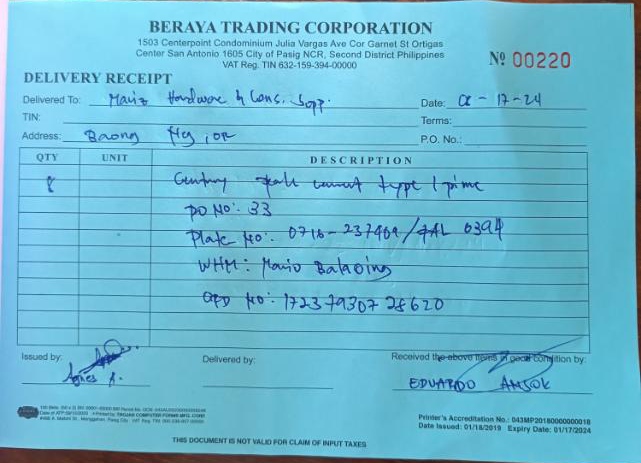 BERAYA TRADING CORPORATION
1503 Centerpoint Condominium Julia Vargas Ave Cor Garnet St Ortigas
Center San Antonio 1605 City of Pasig NCR, Second District Philippines
VAT Reg. TIN 632-159-394-00000
Nº 00220
DELIVERY RECEIPT
Delivered To: Hardware & Cons. Supp. Date: 08-17-24
TIN: Terms:
Address: P.O. No.:
QTY UNIT DESCRIPTION
8 Century cement type 1 prime
PO No: 33
Plate No: 0716-237469/ 6394
WHM: Mario Balaoing
No: 172379307 28620
Issued by: Delivered by: Received the above items in good condition by:
Agnes A. EDUARDO
Printer's Accreditation No.: 043MP20180000000018
Date Issued: 01/18/2019 Expiry Date: 01/17/2024
THIS DOCUMENT IS NOT VALID FOR CLAIM OF INPUT TAXES